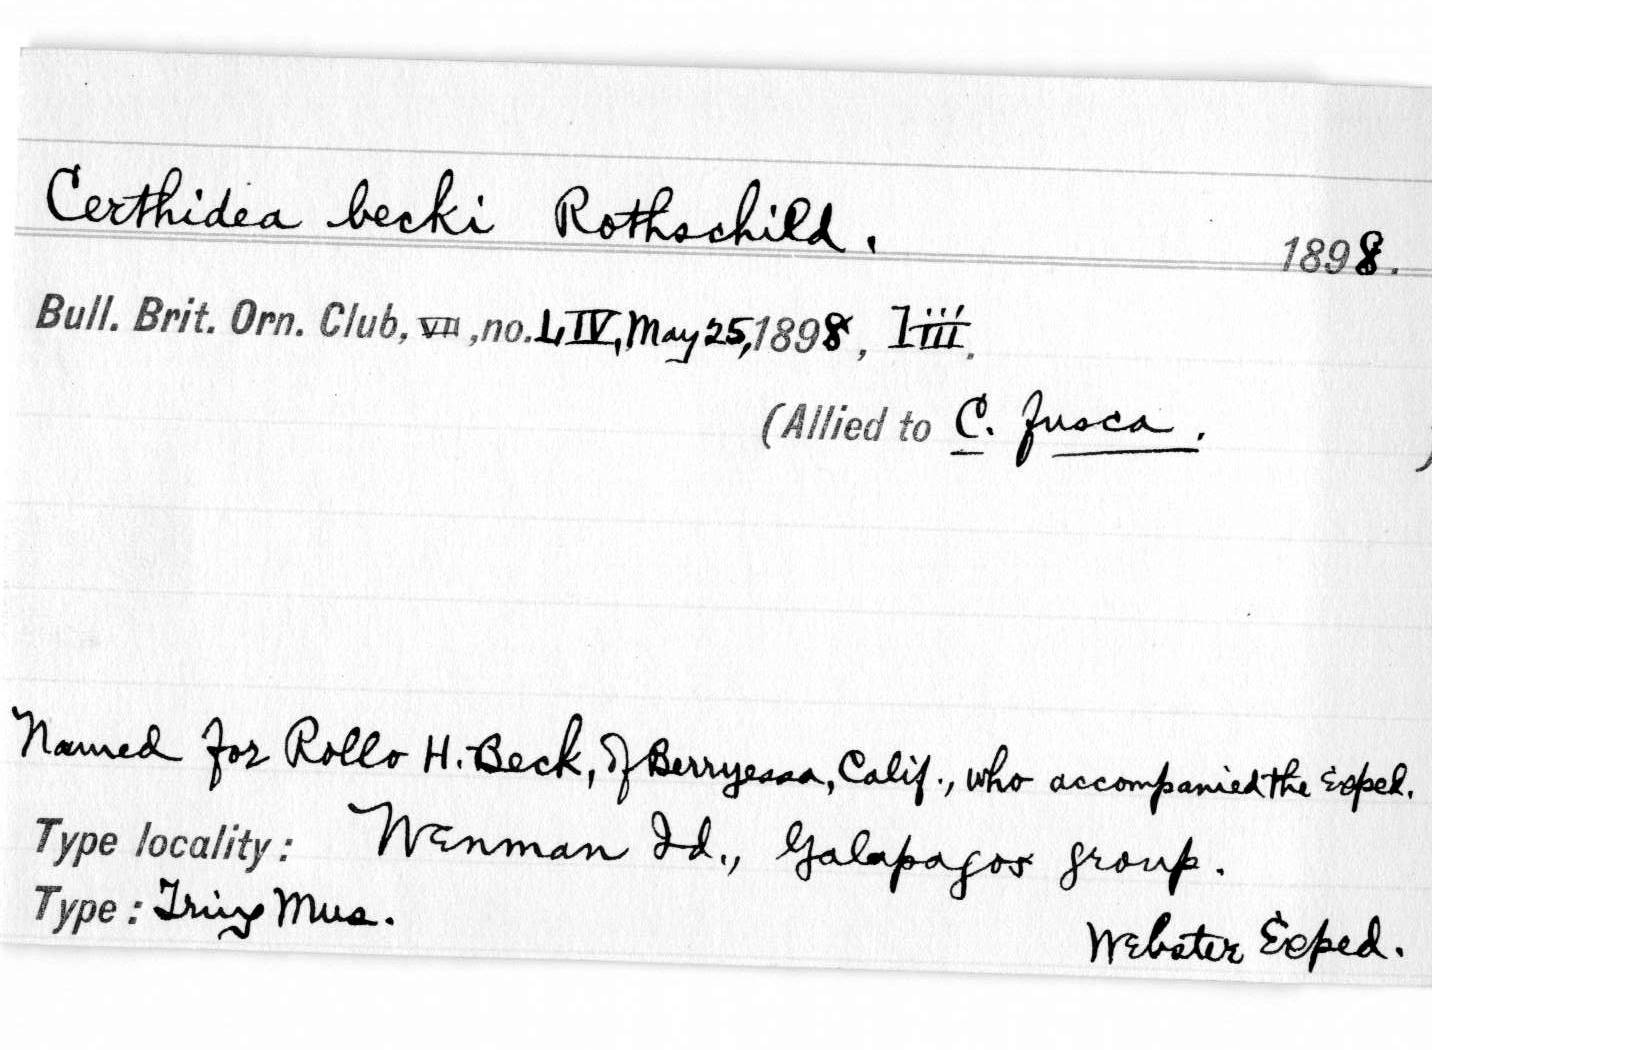 Certhidea becki Rothschild.
1898.
Bull. Brit. Orn. Club, VII, no. LIV, May 25, 1898, liii.
(Allied to C. fusca. )
Named for Rollo H. Beck, of Berryessa, Calif., who accompanied the Exped.
Type locality: Wenman Id., Galapagos group.
Type: Tring Mus.
Webster Exped.